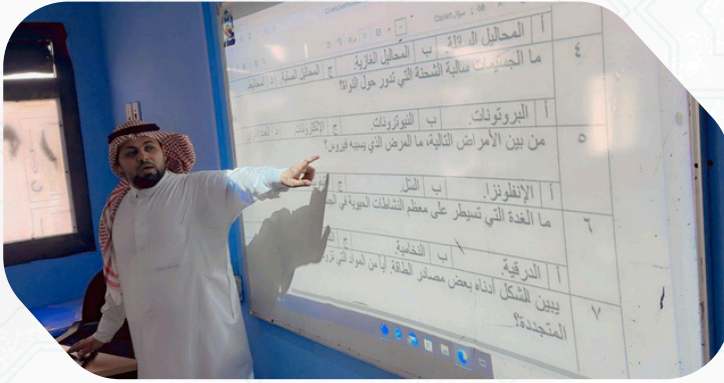 أ المحاليل السائلة. ب المحاليل الغازية. ج المحاليل الصلبة د
٤ ما الجسيمات سالبة الشحنة التي تدور حول النواة؟
أ البروتونات. ب النيوترونات. ج الإلكترونات. د
٥ من بين الأمراض التالية، ما المرض الذي يسببه فيروس؟
أ الإنفلونزا. ب السل. ج
٦ ما الغدة التي تسيطر على معظم النشاطات الحيوية في
أ الدرقية. ب النخامية. ج
٧ يبين الشكل أدناه بعض مصادر الطاقة. أيا من المواد التي
المتجددة؟